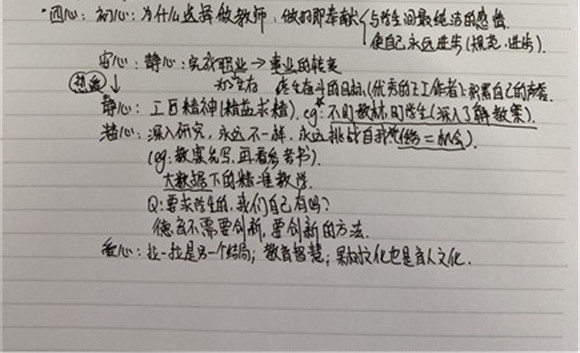 ·四心：初心：为什么选择做教师，做的即奉献 与学生间最纯洁的感情
使自己永远进步(规范,进步).
安心：静心：完成职业→事业的转变
热爱 为了生存 终生奋斗的目标(优秀的工作者):积累自己的
静心：工匠精神(精益求精). eg: 不同教材,同学生(深入了解教案).
潜心：深入研究，永远不一样，永远挑战自我(任务=机会).
(eg:教案先写,再看参考书).
大数据下的精准教学.
Q:要求学生的,我们自己有吗?
德育不需要创新,要创新的方法.
爱心：拉一拉是另一个结局；教育智慧；文化也是育人文化.